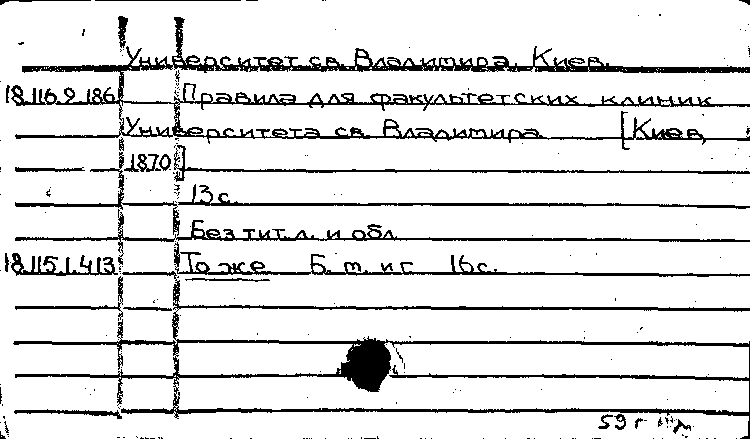 Университет св. Владимира. Киев.
18.116.9.186 Правила для факультетских клиник
Университета св. Владимира [Киев,
1870]
13 с.
Без тит. л. и обл.
18.115.1.413 То же Б. м. и г. 16 с.
59 г